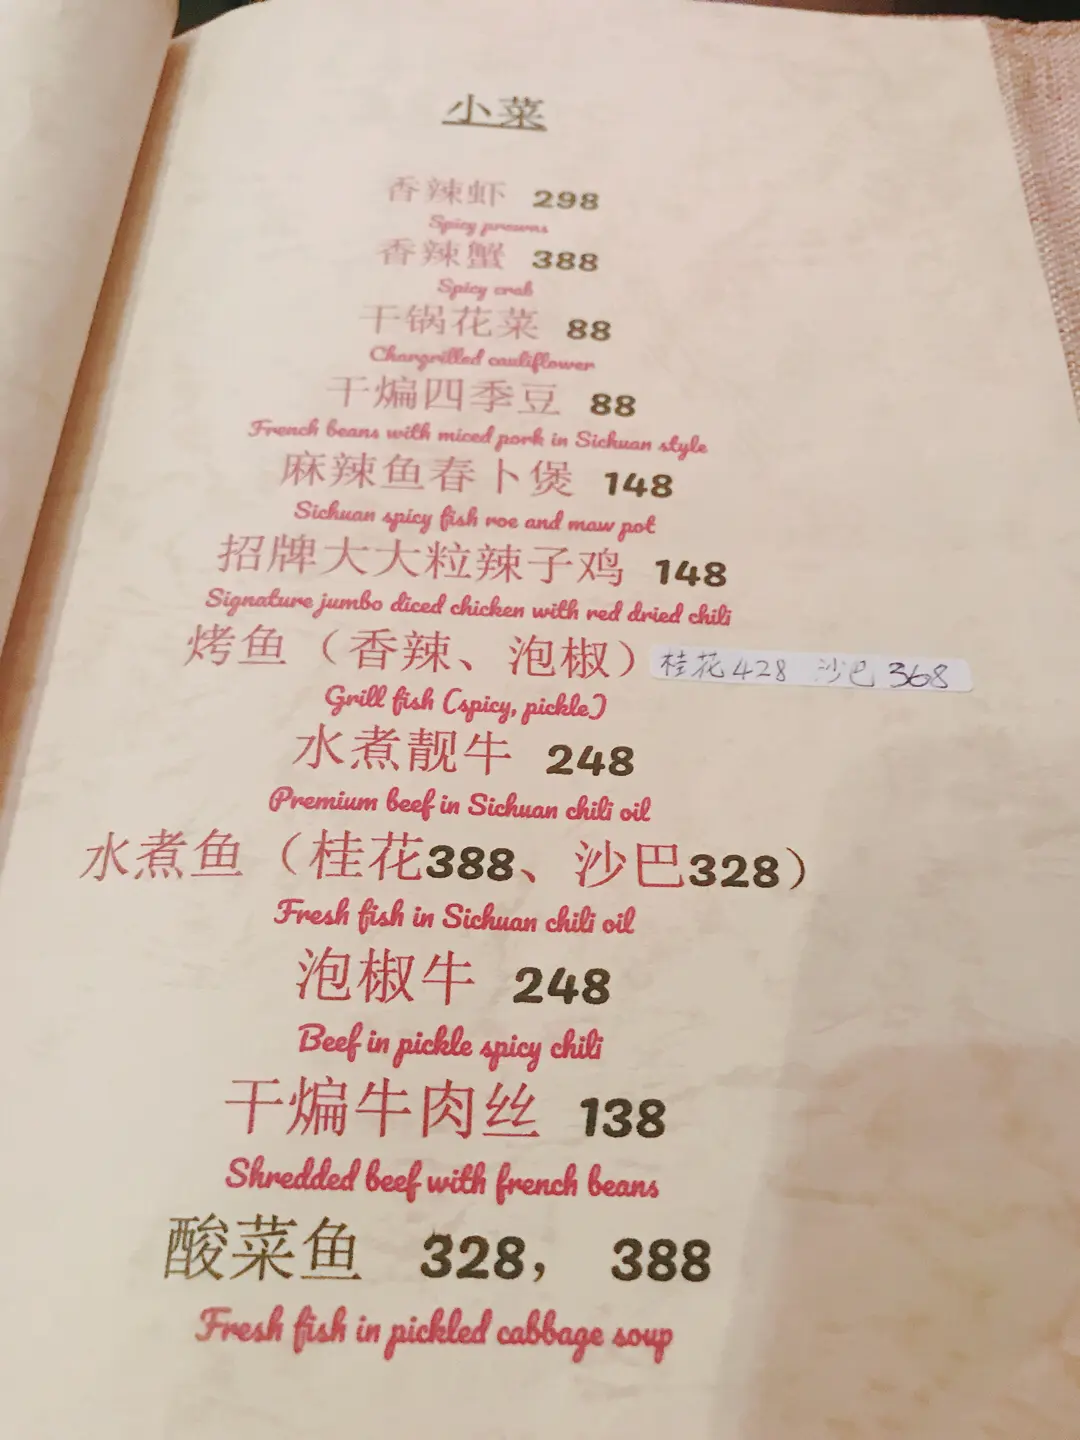 小菜
香辣虾 298
Spicy prawns
香辣蟹 388
Spicy crab
干锅花菜 88
Chargrilled cauliflower
干煸四季豆 88
French beans with miced pork in Sichuan style
麻辣鱼春卜煲 148
Sichuan spicy fish roe and maw pot
招牌大大粒辣子鸡 148
Signature jumbo diced chicken with red dried chili
烤鱼（香辣、泡椒） 桂花428 沙巴368
Grill fish (spicy, pickle)
水煮靓牛 248
Premium beef in Sichuan chili oil
水煮鱼（桂花388、沙巴328）
Fresh fish in Sichuan chili oil
泡椒牛 248
Beef in pickle spicy chili
干煸牛肉丝 138
Shredded beef with french beans
酸菜鱼 328， 388
Fresh fish in pickled cabbage soup